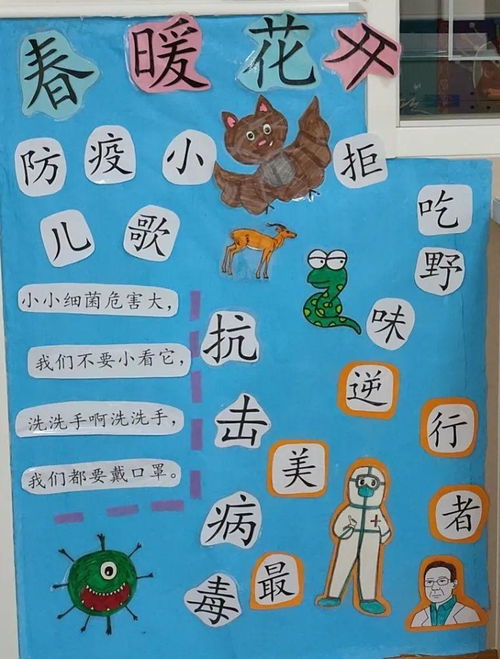 春暖花开
防疫小
儿歌
小小细菌危害大，
我们不要小看它，
洗洗手啊洗洗手，
我们都要戴口罩。
拒吃野味
抗击病毒
最美逆行者